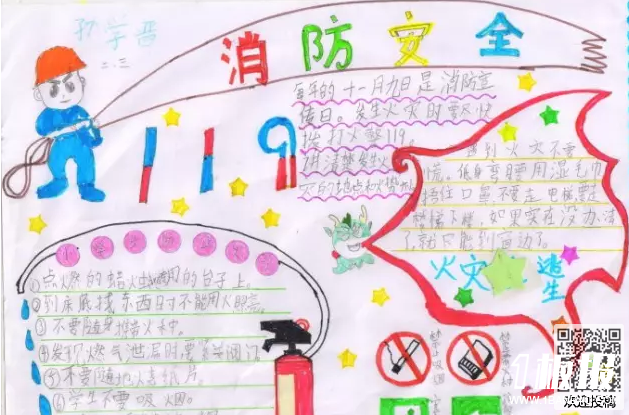 消防安全
119
每年的十一月九日是消防宣
传日。发生火灾时要尽快
拨打火警119。
讲清楚发生火
灾的地点和
遇到火灾不要
慌。低身弯腰用湿毛巾
捂住口鼻不要走电梯,要走
楼梯下楼,如果实在没办法
了,就只能到窗边了。
火灾逃生
①点燃的蜡火的台子上。
②到床底找东西时不能用火照亮。
③不要随身携带火种。
④发现燃气泄漏时要关阀门
⑤不要随地烧纸片。
⑥学生不要吸烟。
禁止吸烟
禁带火种